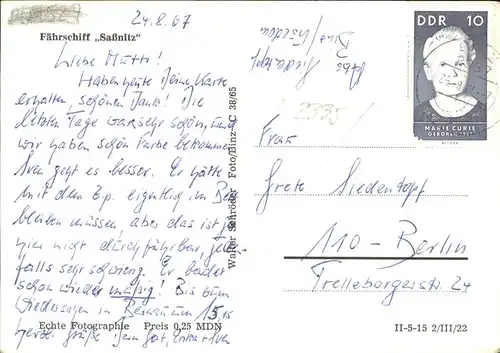 24.8.67
Fährschiff „Saßnitz"
Liebe Mutti!
Haben heute Deine Karte
erhalten, schönen Dank! Die
letzten Tage war sehr schön, und
wir haben schön Farbe bekommen.
geht es besser. Er hätte
mit dem eigentlich im Bett
bleiben müssen, aber das ist ja
hier nicht durchführbar, jeden-
falls sehr schwierig. Er badet
schon wieder mäßig! Bis zum
Wiedersehen in
herzl. Grüße
Echte Fotographie Preis 0,25 MDN
Walter Schröder Foto/Binz C 38/65
Abs. Siedentopf
2335
DDR 10
MARIE CURIE
GEBOREN 1867
Frau
Grete Siedentopf
110-Berlin
Trelleborgerstr. 24
II-5-15 2/III/22